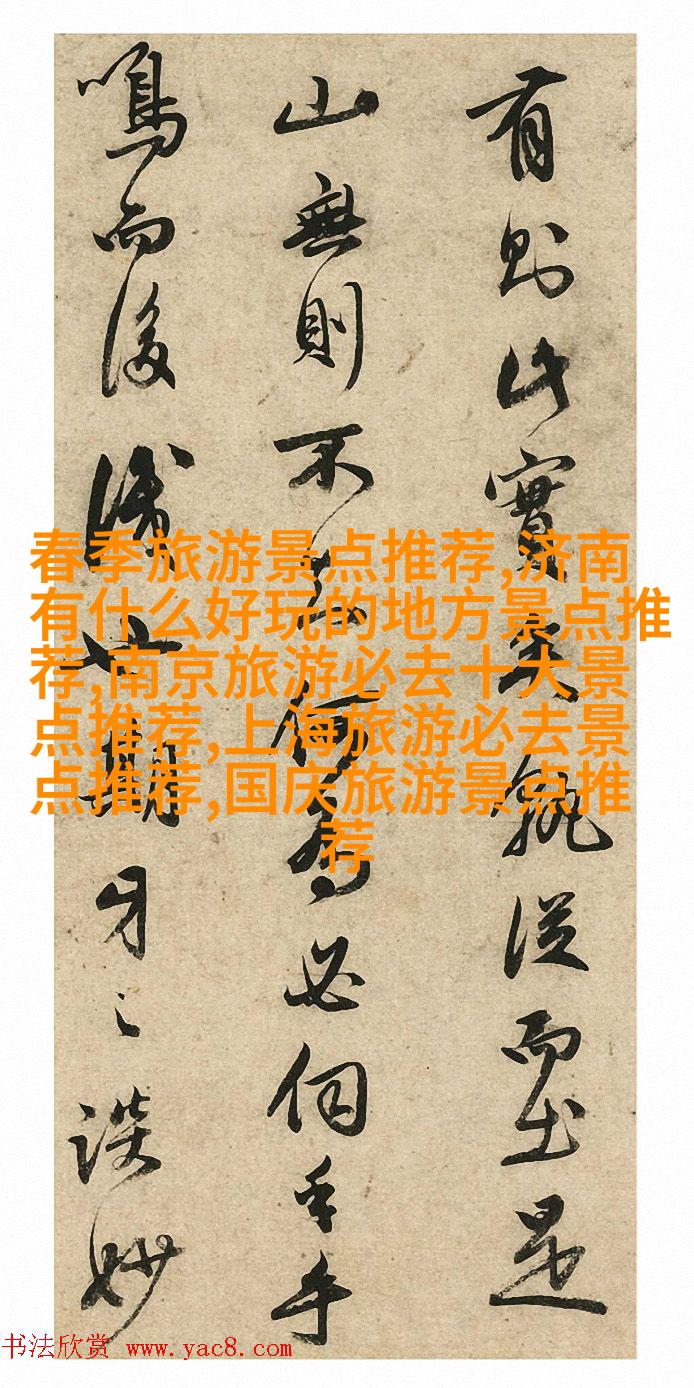 有則此實矣孰從而出是
山無則不何為必手乎
鳴而後世期談妙
春季旅游景点推荐,济南
有什么好玩的地方景点推
荐,南京旅游必去十大景
点推荐,上海旅游必去景
点推荐,国庆旅游景点推
荐
书法欣赏 www.yac8.com